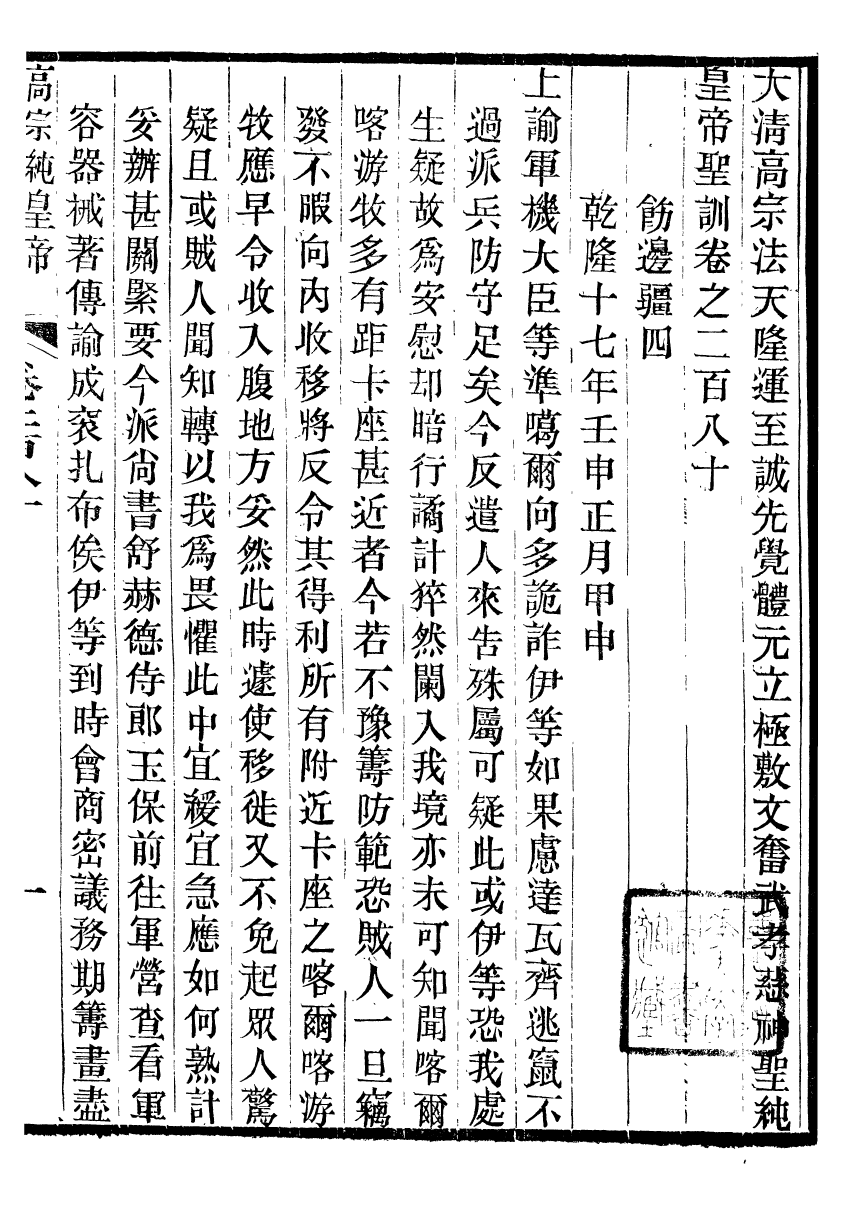 大清高宗法天隆運至誠先覺體元立極敷文奮武孝慈神聖純
皇帝聖訓卷之二百八十
飭邊疆四
乾隆十七年壬申正月甲申
上諭軍機大臣等準噶爾向多詭詐伊等如果慮達瓦齊逃竄不
過派兵防守足矣今反遣人來告殊屬可疑此或伊等恐我處
生疑故爲安慰却暗行譎計猝然闌入我境亦未可知聞喀爾
喀游牧多有距卡座甚近者今若不豫籌防範恐賊人一旦竊
發不暇向內收移將反令其得利所有附近卡座之喀爾喀游
牧應早令收入腹地方妥然此時遽使移徙又不免起眾人驚
疑且或賊人聞知轉以我爲畏懼此中宜緩宜急應如何熟計
妥辦甚關緊要今派尚書舒赫德侍郎玉保前往軍營查看軍
容器械著傳諭成袞扎布俟伊等到時會商密議務期籌畫盡
高宗純皇帝
一